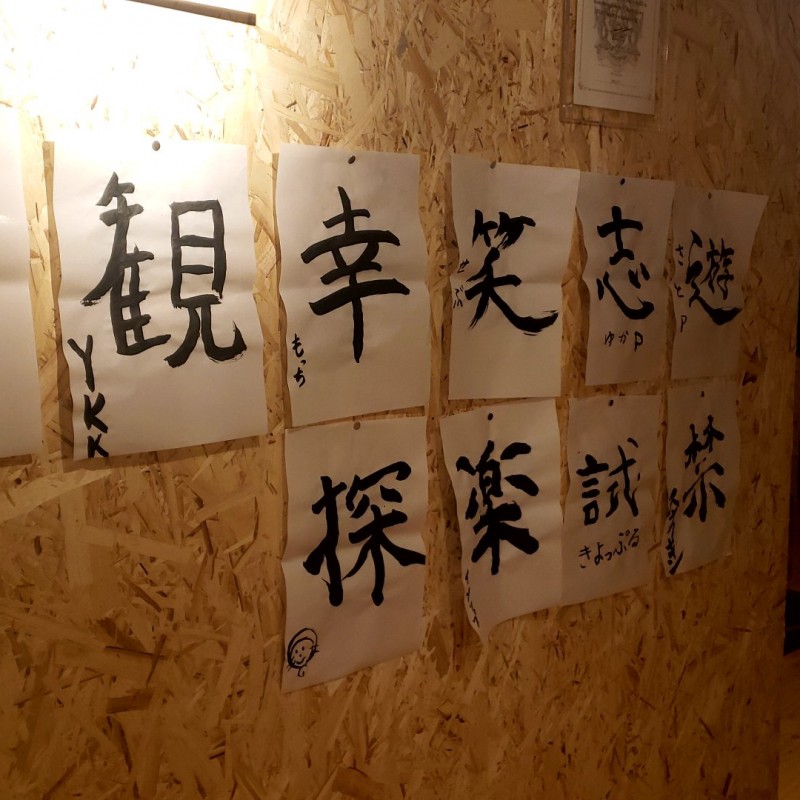 観
YKK
幸
もっち
笑
せぶ
志
ゆかP
遊
さとP
探
楽
試
きょっぷる
禁